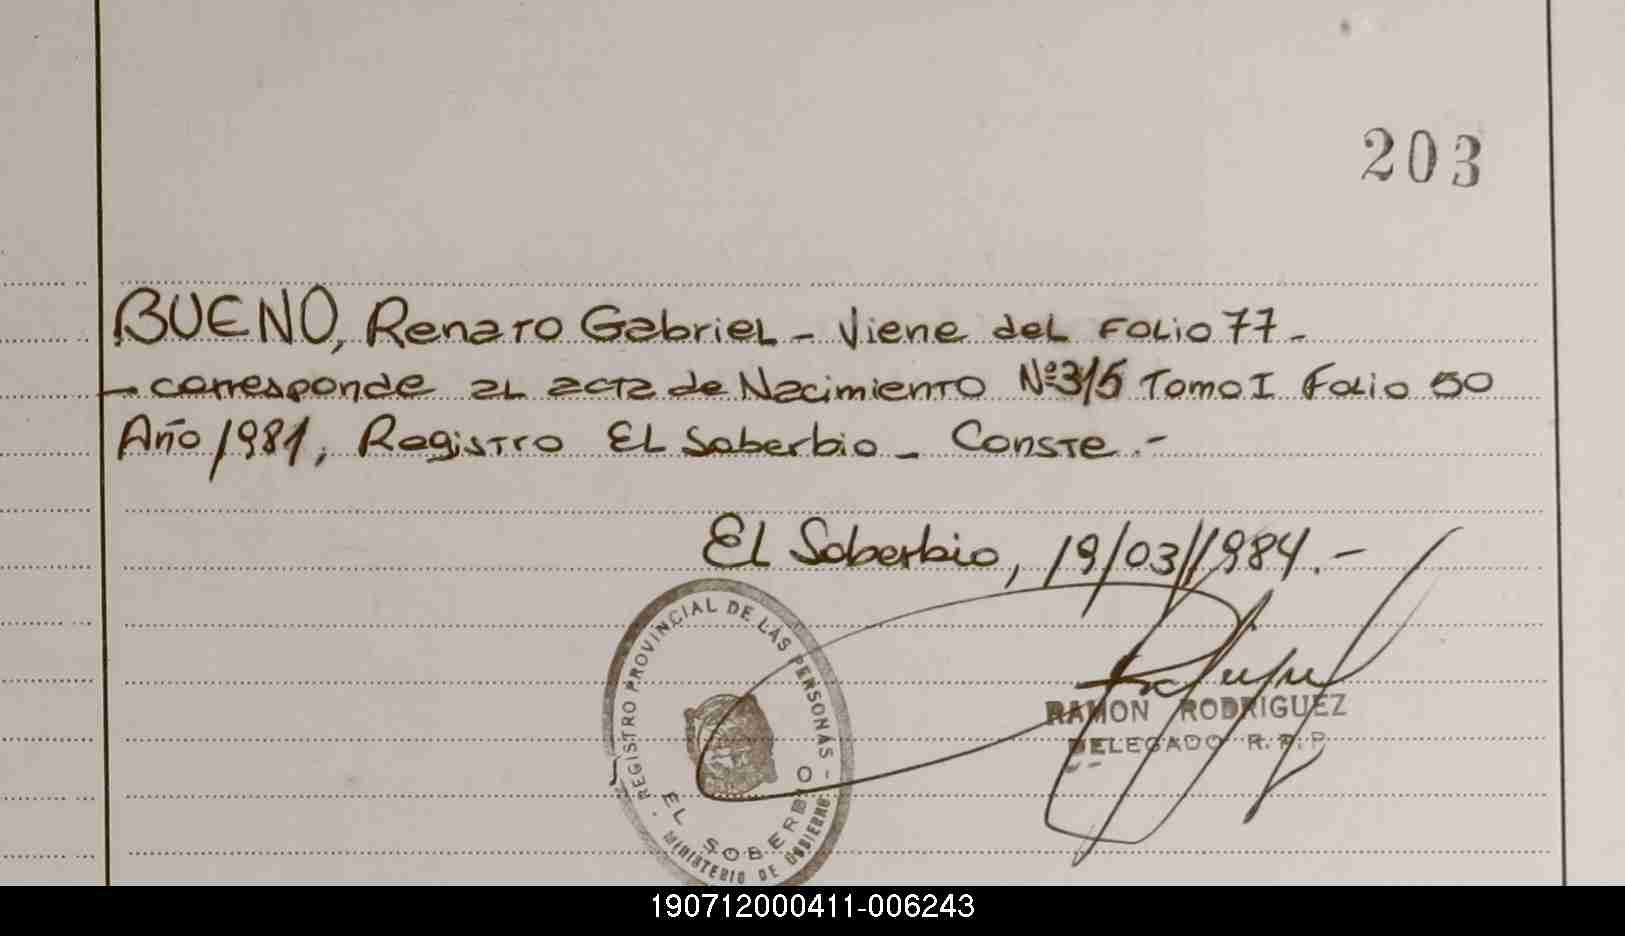 203
BUENO, Renato Gabriel - Viene del Folio 77 -
- corresponde al acta de Nacimiento Nº 315 Tomo I Folio 50
Año 1981, Registro El Soberbio - Conste.-
El Soberbio, 19/03/1984.-
REGISTRO PROVINCIAL DE LAS PERSONAS -
EL SOBERBIO
MINISTERIO DE GOBIERNO
RAMON RODRIGUEZ
DELEGADO R.P.P
190712000411-006243